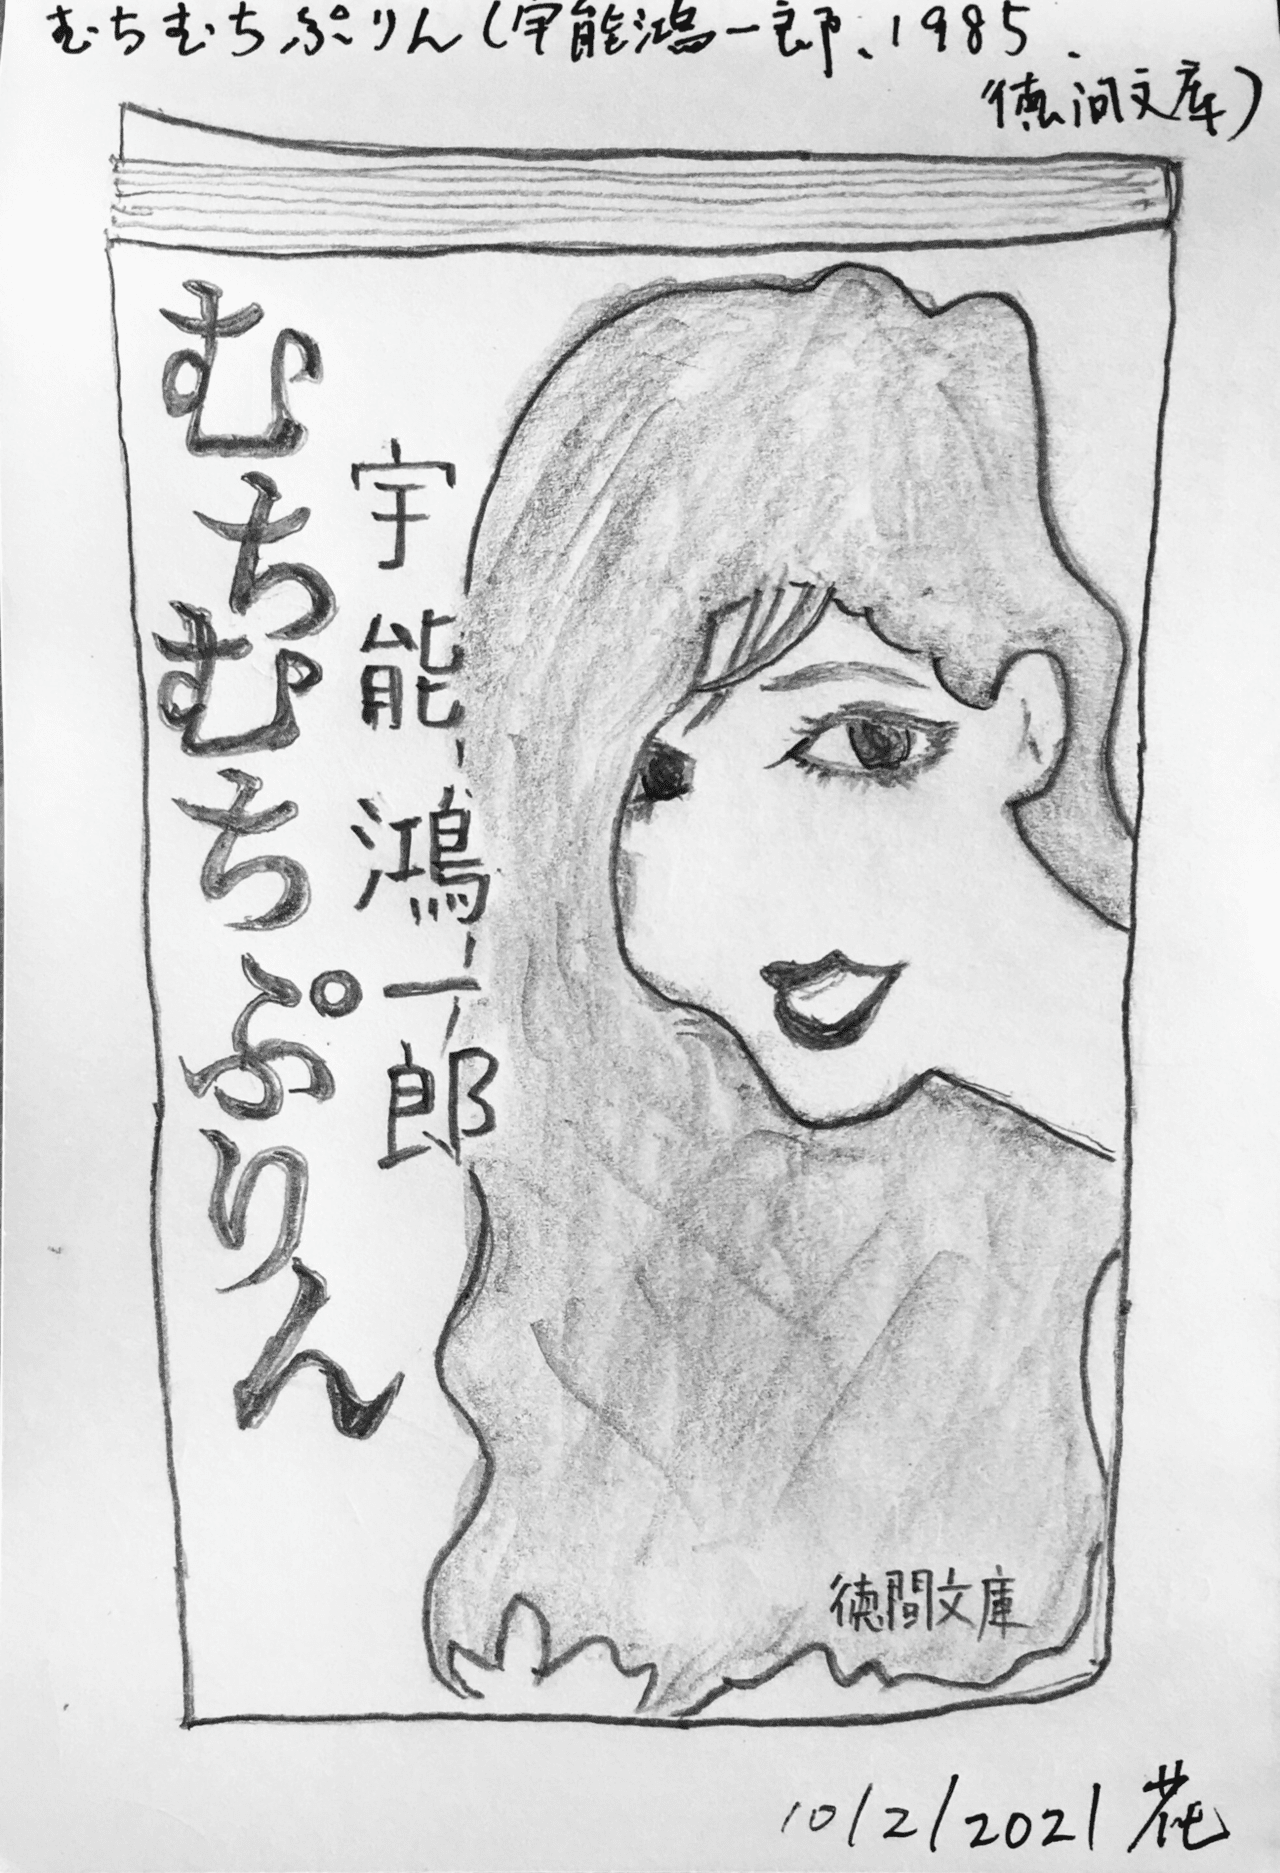 むちむちぷりん(宇能鴻一郎、1985、
徳间文庫)
むちむちぷりん
宇能鴻一郎
徳間文庫
10/2/2021 花